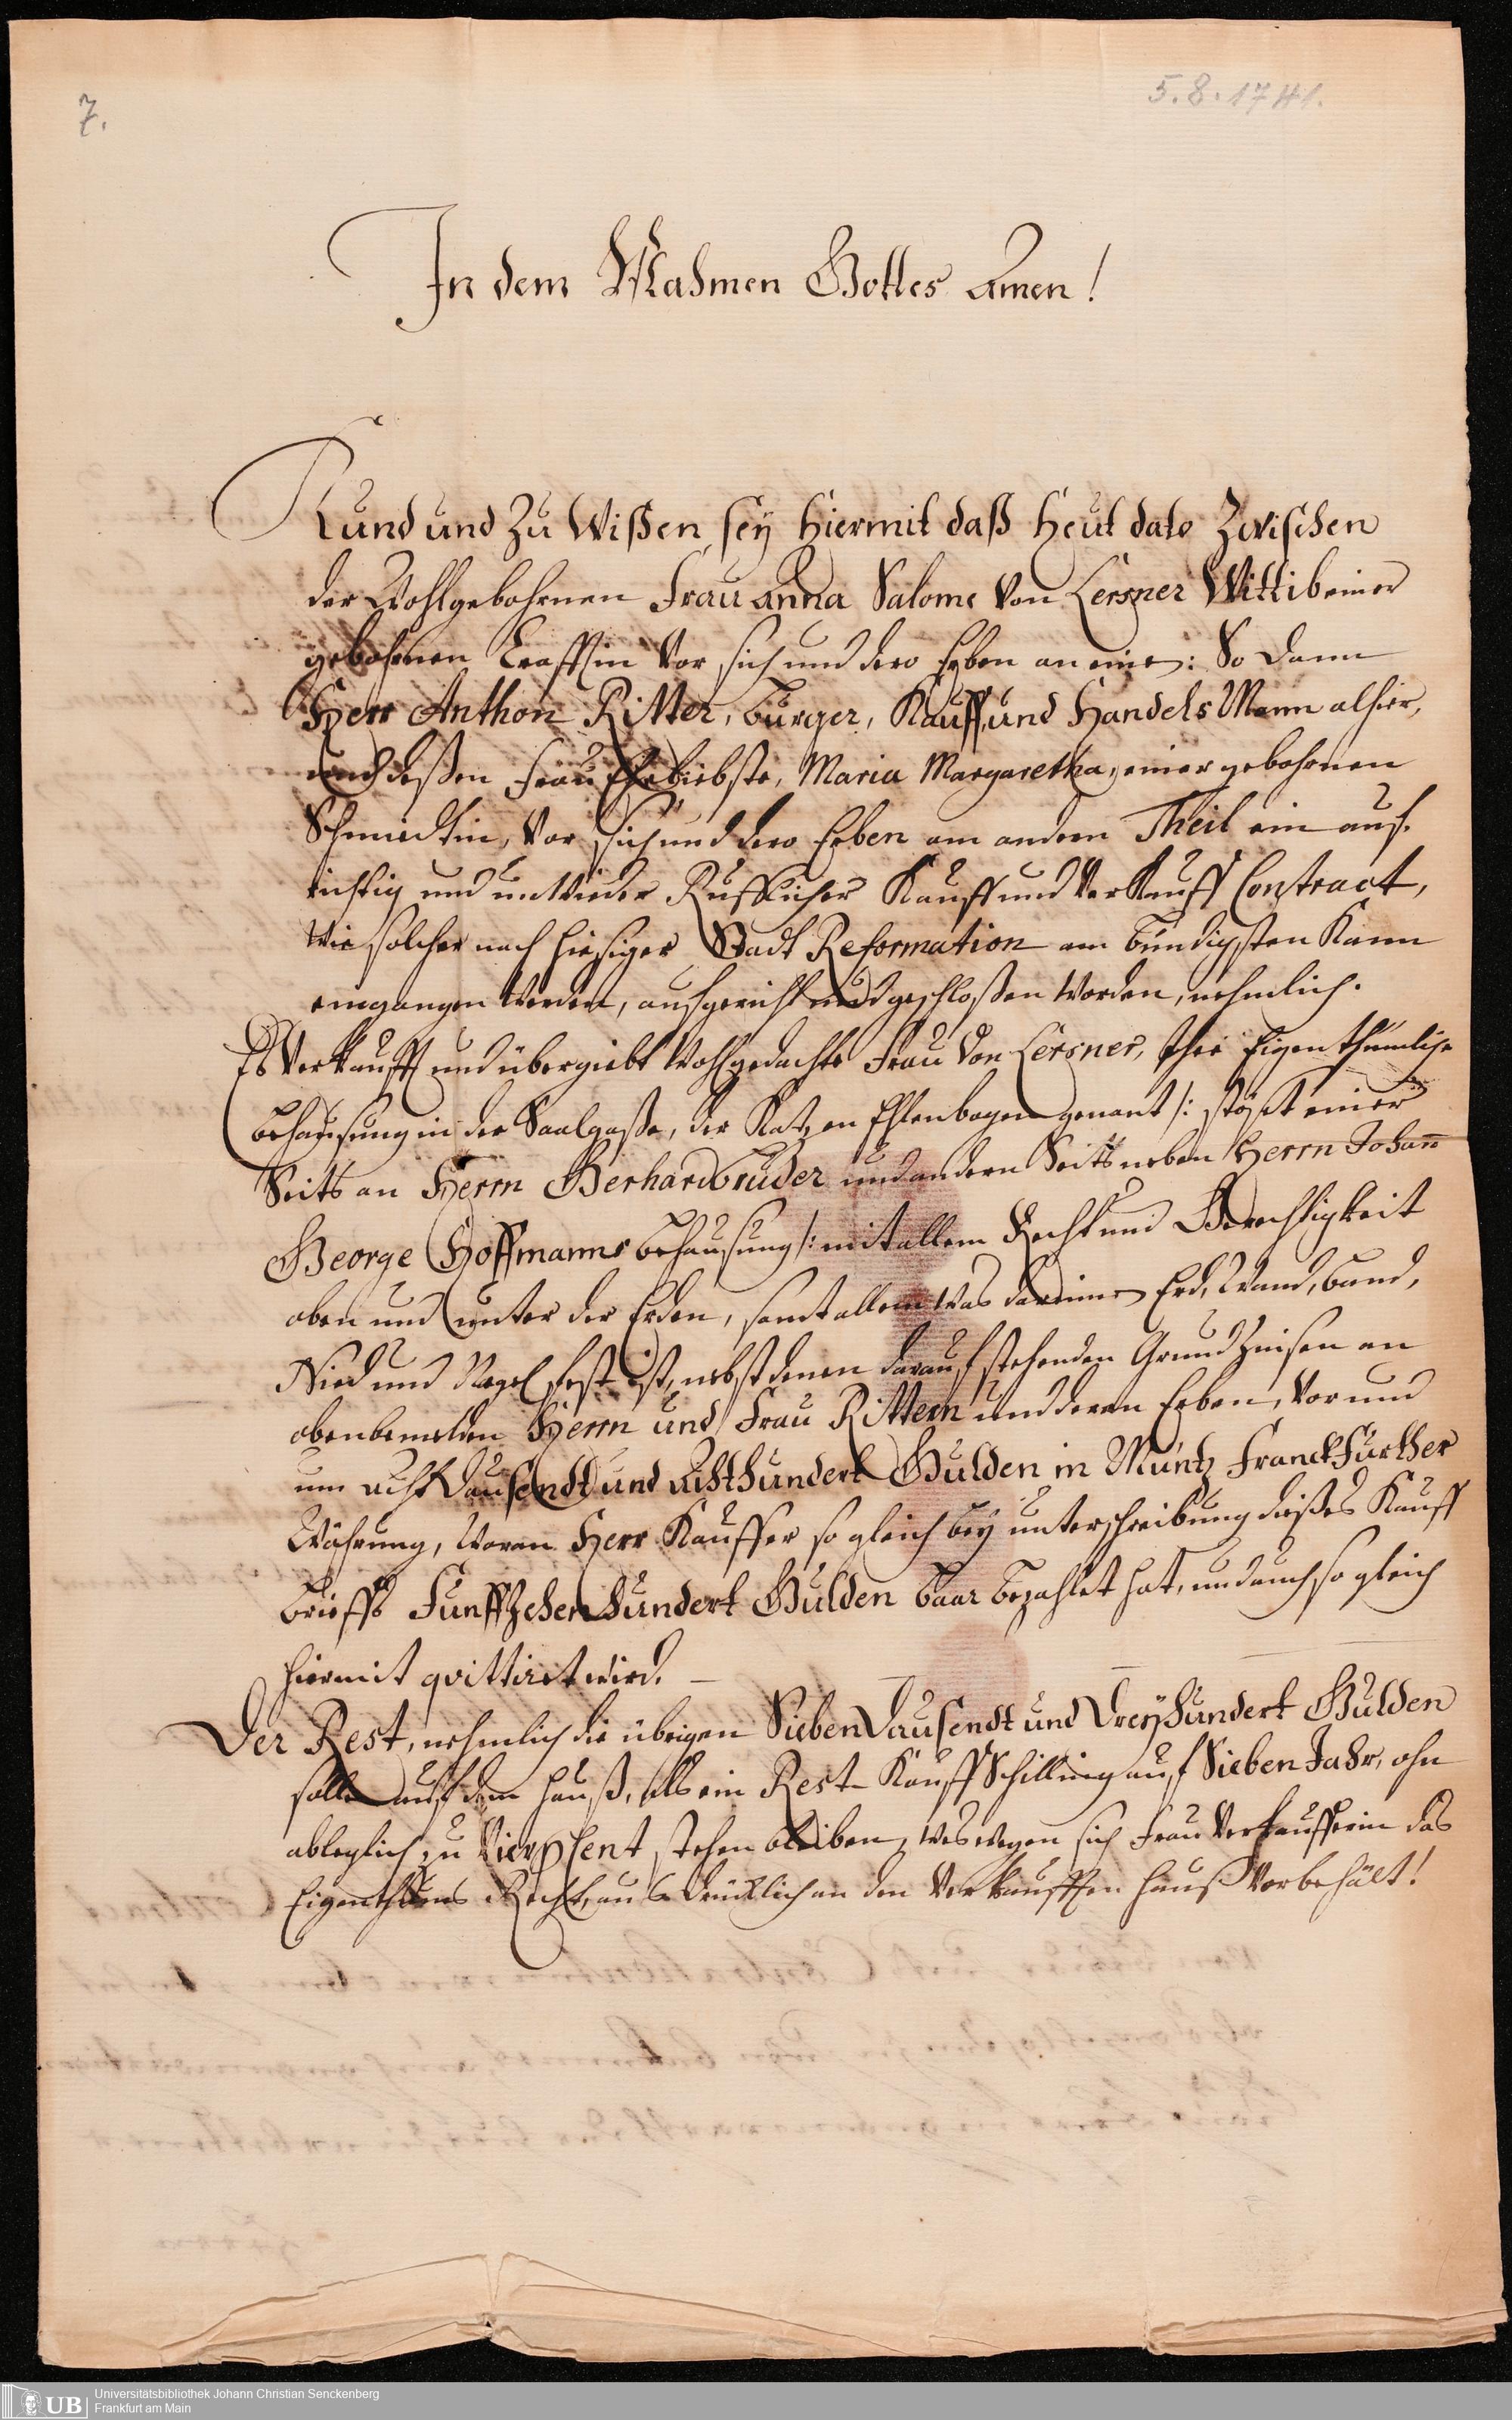 7.
5.8.1741.
In dem Nahmen Gottes Amen!
Kund und Zu Wißen sey hiermit daß heut dato Zwischen
der Wohlgebohrnen Frau Anna Salome Von Lersner Wittib einer
gebohrnen vor sich und dero Erben an eine: So dann
Herr Anthon Ritter, burger, Kauff und Handels Mann alhier,
und deßen Frau Eheliebste, Maria Margaretha, einer gebohrnen
Schmidtin, Vor sich und dero Erben am andern Theil ein auf-
richtig und unwieder Rufflicher Kauff und Verkauff Contract,
Wie solcher nach hiesiger Stadt Reformation am bündigsten Kann
eingangen werden, aufgericht und geschloßen worden, nehmlich.
Es Verkaufft und übergiebt Wohlgedachte Frau Von Lersner, Ihre Eigenthümliche
behausung in der Saalgaße, der Katzen Ehlenbogen genant /: stößt einer
Seits an Herrn Gerhard bruder und andern Seits neben Herrn Johann
George Hoffmanns behausung :/ mit allem Recht und Gerechtigkeit
oben und unter der Erden, samt allem Was darinnen Erd, Wand, band,
Nied und Nagel fest ist, nebst denen darauf stehenden Grund Zinsen an
obenbemelden Herrn und Frau Rittern und deren Erben, Vor und
um acht Dausendt und Achthundert Gulden in Müntz Franckfurther
Währung, Woran Herr Kauffer so gleich bey unterschreibung dießes Kauff
brieffs Funffzehenhundert Gulden baar bezahlet hat, und auch so gleich
hiermit qvittiret wird. —
Der Rest, nehmlich die übrigen Sieben Dausendt und Dreyhundert Gulden
solle auf dem Hauß, als ein Rest Kauff Schilling auf Sieben Jahr, ohn
ableglich zu Vier p Cent stehen bleiben, weswegen sich Frau Verkaufferin das
Eigenthums Recht, ausdrücklich an den Verkaufften Hauß Vorbehält!
UB
Universitätsbibliothek Johann Christian Senckenberg
Frankfurt am Main